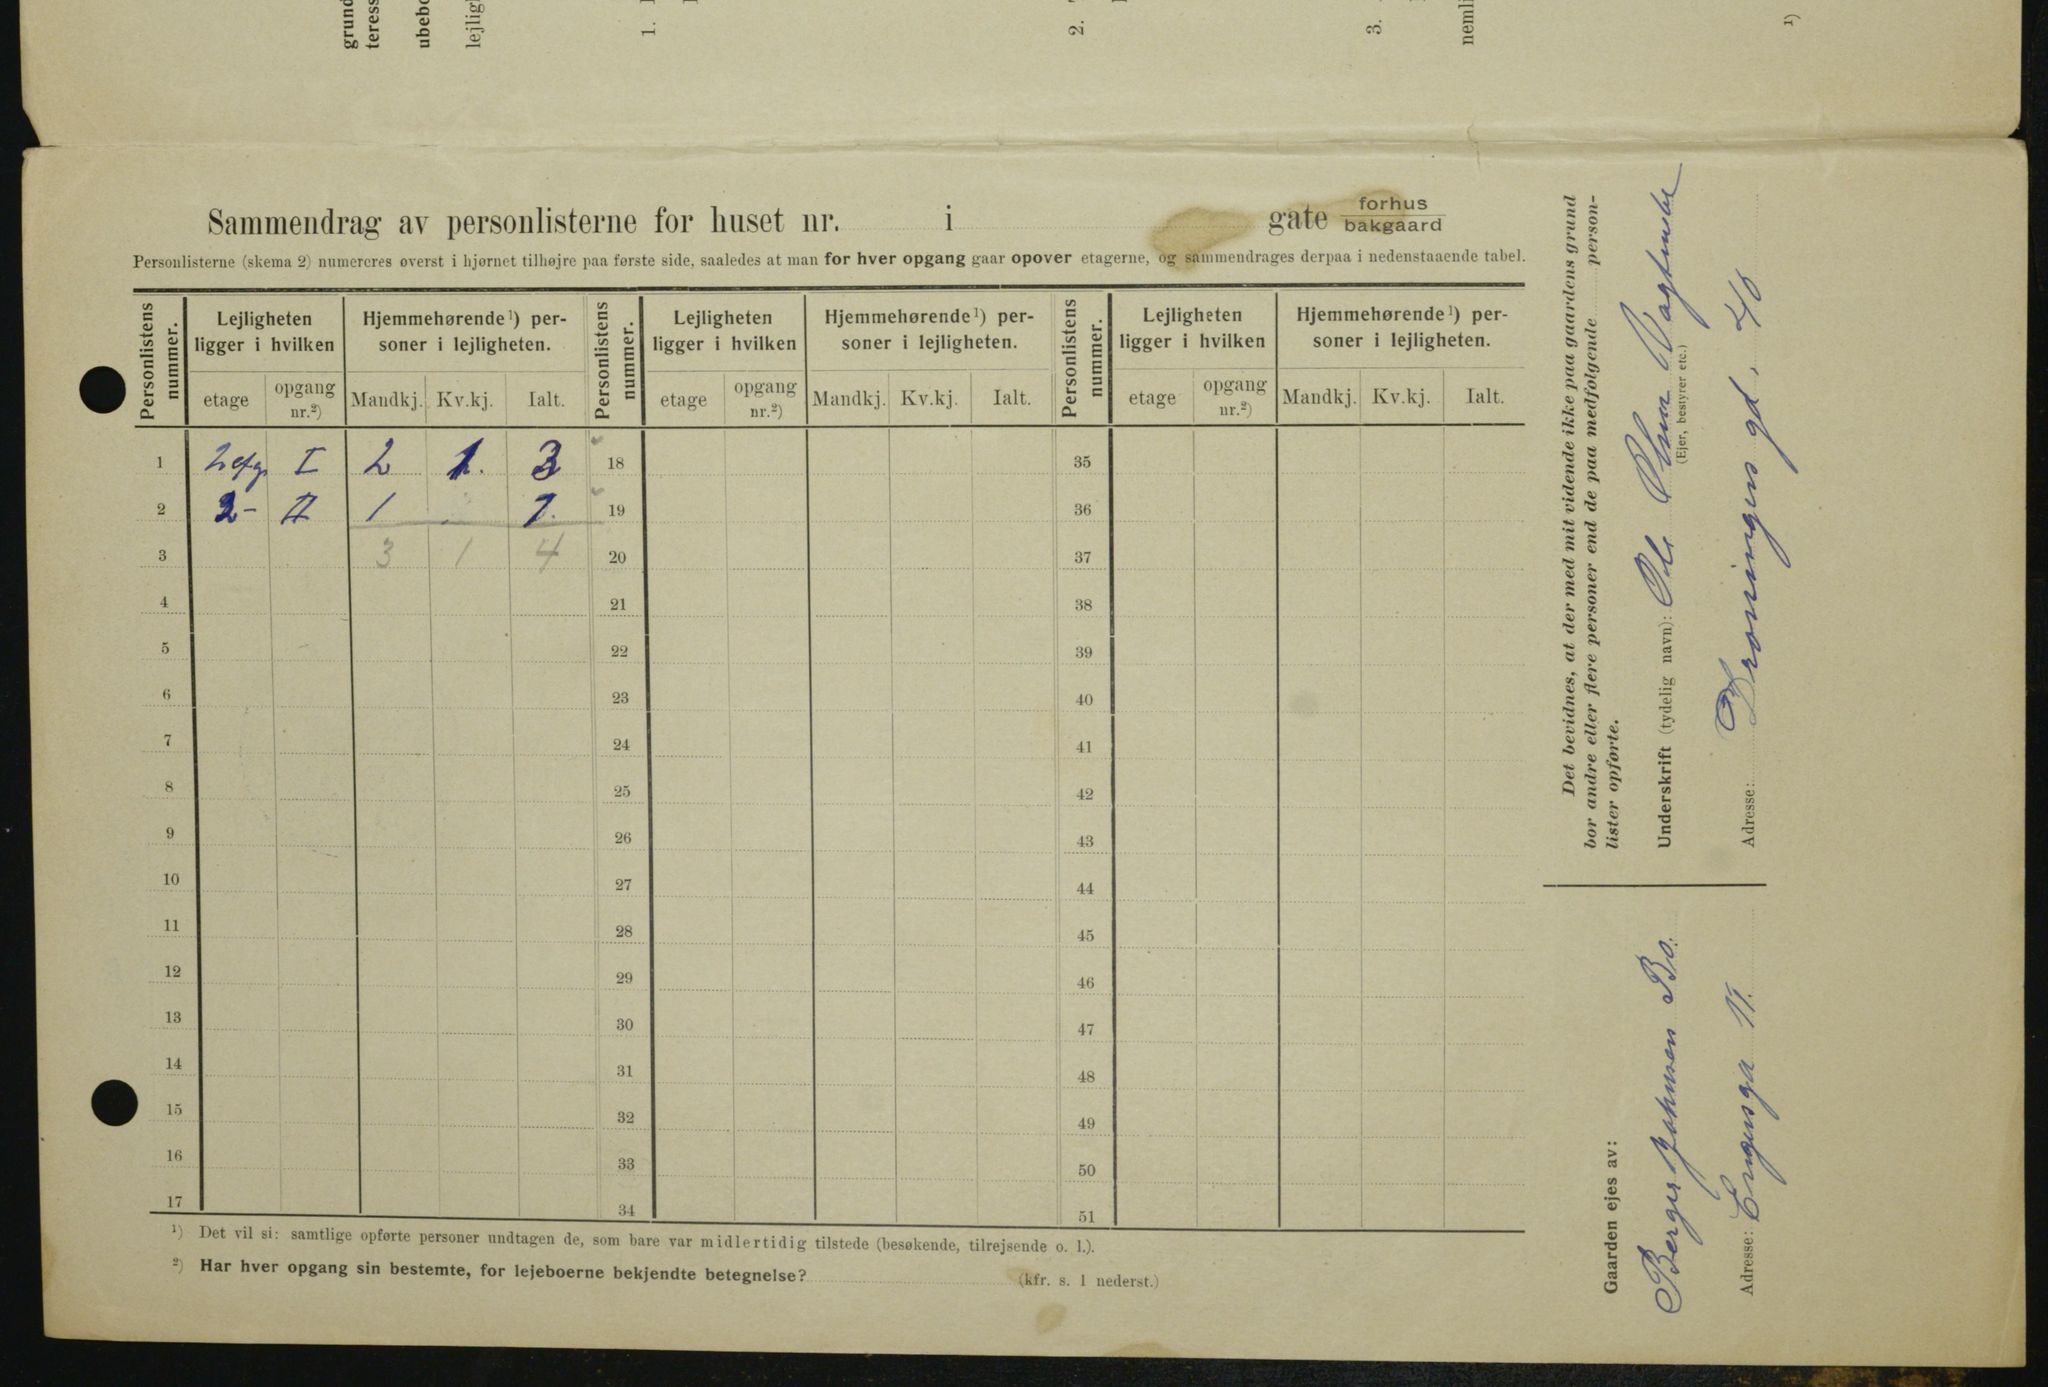 grund
teress
ubebo
lejligh
1.
2.
3.
nemli
1)
Sammendrag av personlisterne for huset nr. i gate forhus
bakgaard
Personlisterne (skema 2) numereres øverst i hjørnet tilhøjre paa første side, saaledes at man for hver opgang gaar opover etagerne, og sammendrages derpaa i nedenstaaende tabel.
Personlistens nummer. Lejligheten ligger i hvilken Hjemmehørende 1) personer i lejligheten. Personlistens nummer. Lejligheten ligger i hvilken Hjemmehørende 1) personer i lejligheten. Personlistens nummer. Lejligheten ligger i hvilken Hjemmehørende 1) personer i lejligheten.
etage opgang nr.2) Mandkj. Kv.kj. Ialt. etage opgang nr.2) Mandkj. Kv.kj. Ialt. etage opgang nr.2) Mandkj. Kv.kj. Ialt.
1 I 2 1. 3 18 35
2 2- II 1 1. 19 36
3 3 1 4 20 37
4 21 38
5 22 39
6 23 40
7 24 41
8 25 42
9 26 43
10 27 44
11 28 45
12 29 46
13 30 47
14 31 48
15 32 49
16 33 50
17 34 51
1) Det vil si: samtlige opførte personer undtagen de, som bare var midlertidig tilstede (besøkende, tilrejsende o. l.).
2) Har hver opgang sin bestemte, for lejeboerne bekjendte betegnelse? (kfr. s. 1 nederst.)
Det bevidnes, at der med mit vidende ikke paa gaardens grund
bor andre eller flere personer end de paa medfølgende personlister opførte.
Underskrift (tydelig navn): Ole
(Ejer, bestyrer etc.)
Adresse: Dronningens gd. 40
Gaarden ejes av:
Berger Johnsen Bo.
Adresse: Engensga 11.